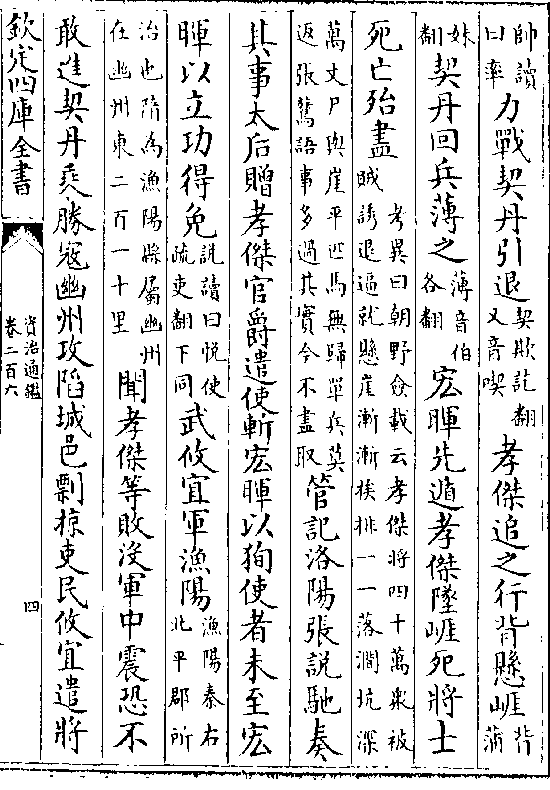 帥讀曰率力戰契丹引退契欺訖翻又音喫孝傑追之行背懸崖背蒲
妹翻契丹回兵薄之薄音伯各翻宏暉先遁孝傑墜崖死將士
死亡殆盡考異曰朝野僉載云孝傑將四十萬衆被賊誘退逼就懸崖漸漸挨排一一落澗坑深
萬丈尸與崖平匹馬無歸單兵莫返張鷟語事多過其實今不盡取管記洛陽張說馳奏
其事太后贈孝傑官爵遣使斬宏暉以狥使者未至宏
暉以立功得免說讀曰悅使疏吏翻下同武攸宜軍漁陽漁陽秦右北平郡所
治也隋為漁陽縣屬幽州在幽州東二百一十里聞孝傑等敗沒軍中震恐不
敢進契丹乘勝寇幽州攻䧟城邑剽掠吏民攸宜遣將
欽定四庫全書
資治通鑑
卷二百六
四